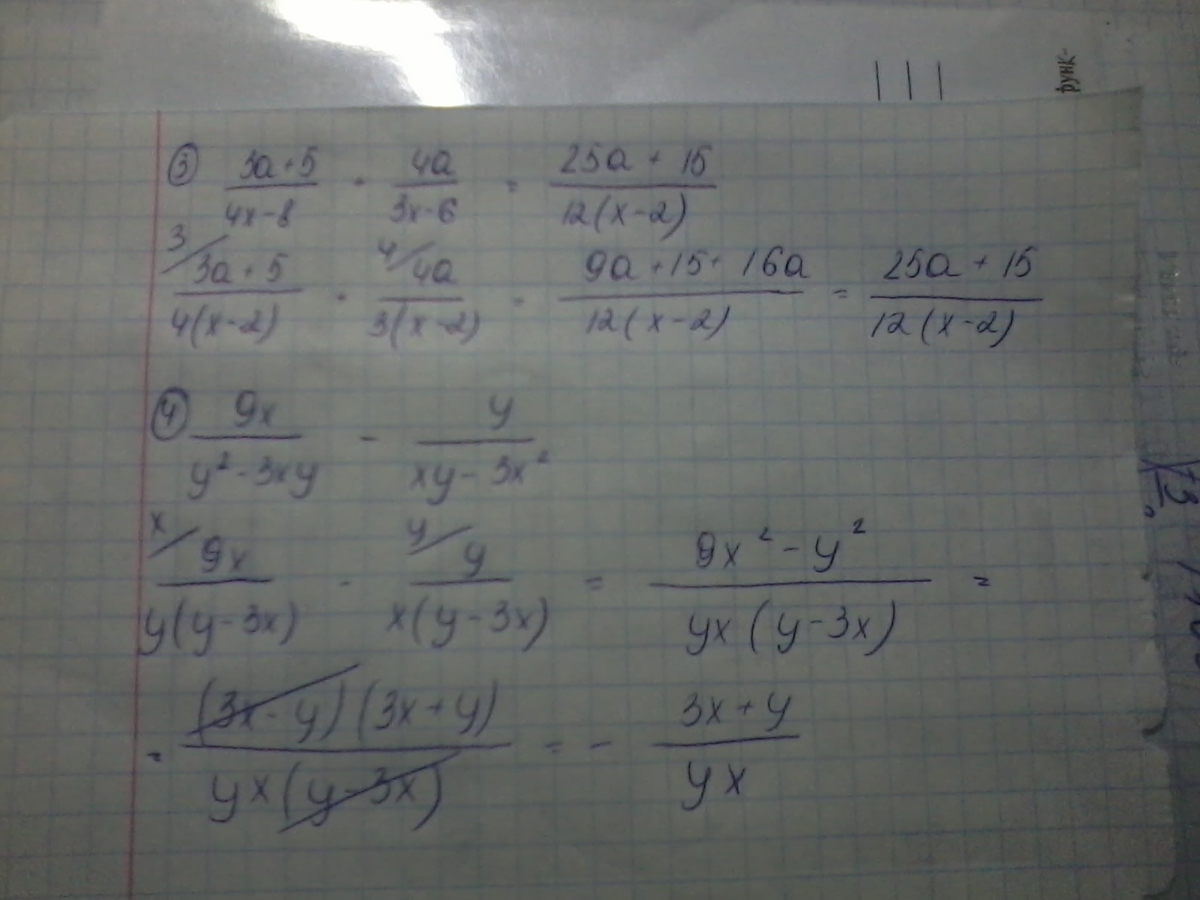 функ-
③ (3a+5)/(4x-8) - 4a/(3x-6) = (25a+15)/(12(x-2))
3/ (3a+5)/(4(x-2)) - 4/ 4a/(3(x-2)) = (9a+15+16a)/(12(x-2)) = (25a+15)/(12(x-2))
④ 9x/(y²-3xy) - y/(xy-3x²)
x/ 9x/(y(y-3x)) - y/ y/(x(y-3x)) = (9x²-y²)/(yx(y-3x)) =
= (3x-y)(3x+y)/(yx(y-3x)) = - (3x+y)/(yx)